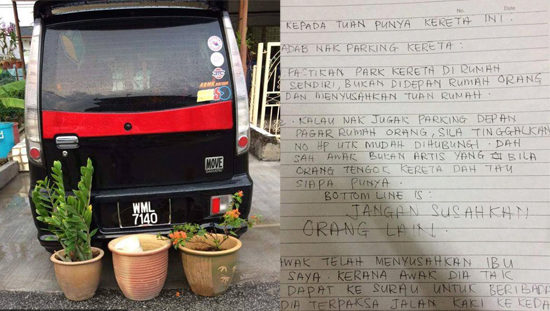 MOVE
WML
7140
No.
Date
KEPADA TUAN PUNYA KERETA INI.
ADAB NAK PARKING KERETA:
PASTIKAN PARK KERETA DI RUMAH
SENDIRI, BUKAN DIDEPAN RUMAH ORANG
DAN MENYUSAHKAN TUAN RUMAH.
KALAU NAK JUGAK PARKING DEPAN
PAGAR RUMAH ORANG, SILA TINGGALKAN
NO. HP UTK MUDAH DIHUBUNGI. DAH
SAH AWAK BUKAN ARTIS YANG BILA
ORANG TENGOK KERETA DAH TAU
SIAPA PUNYA.
BOTTOM LINE IS:
JANGAN SUSAHKAN
ORANG LAIN!.
AWAK TELAH MENYUSAHKAN IBU
SAYA. KERANA AWAK DIA TAK
DAPAT KE SURAU UNTUK BERIBADA
DIA TERPAKSA JALAN KAKI KE KEDA